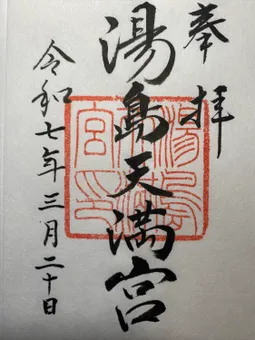 奉拝
湯島天満宮
令和七年三月二十日